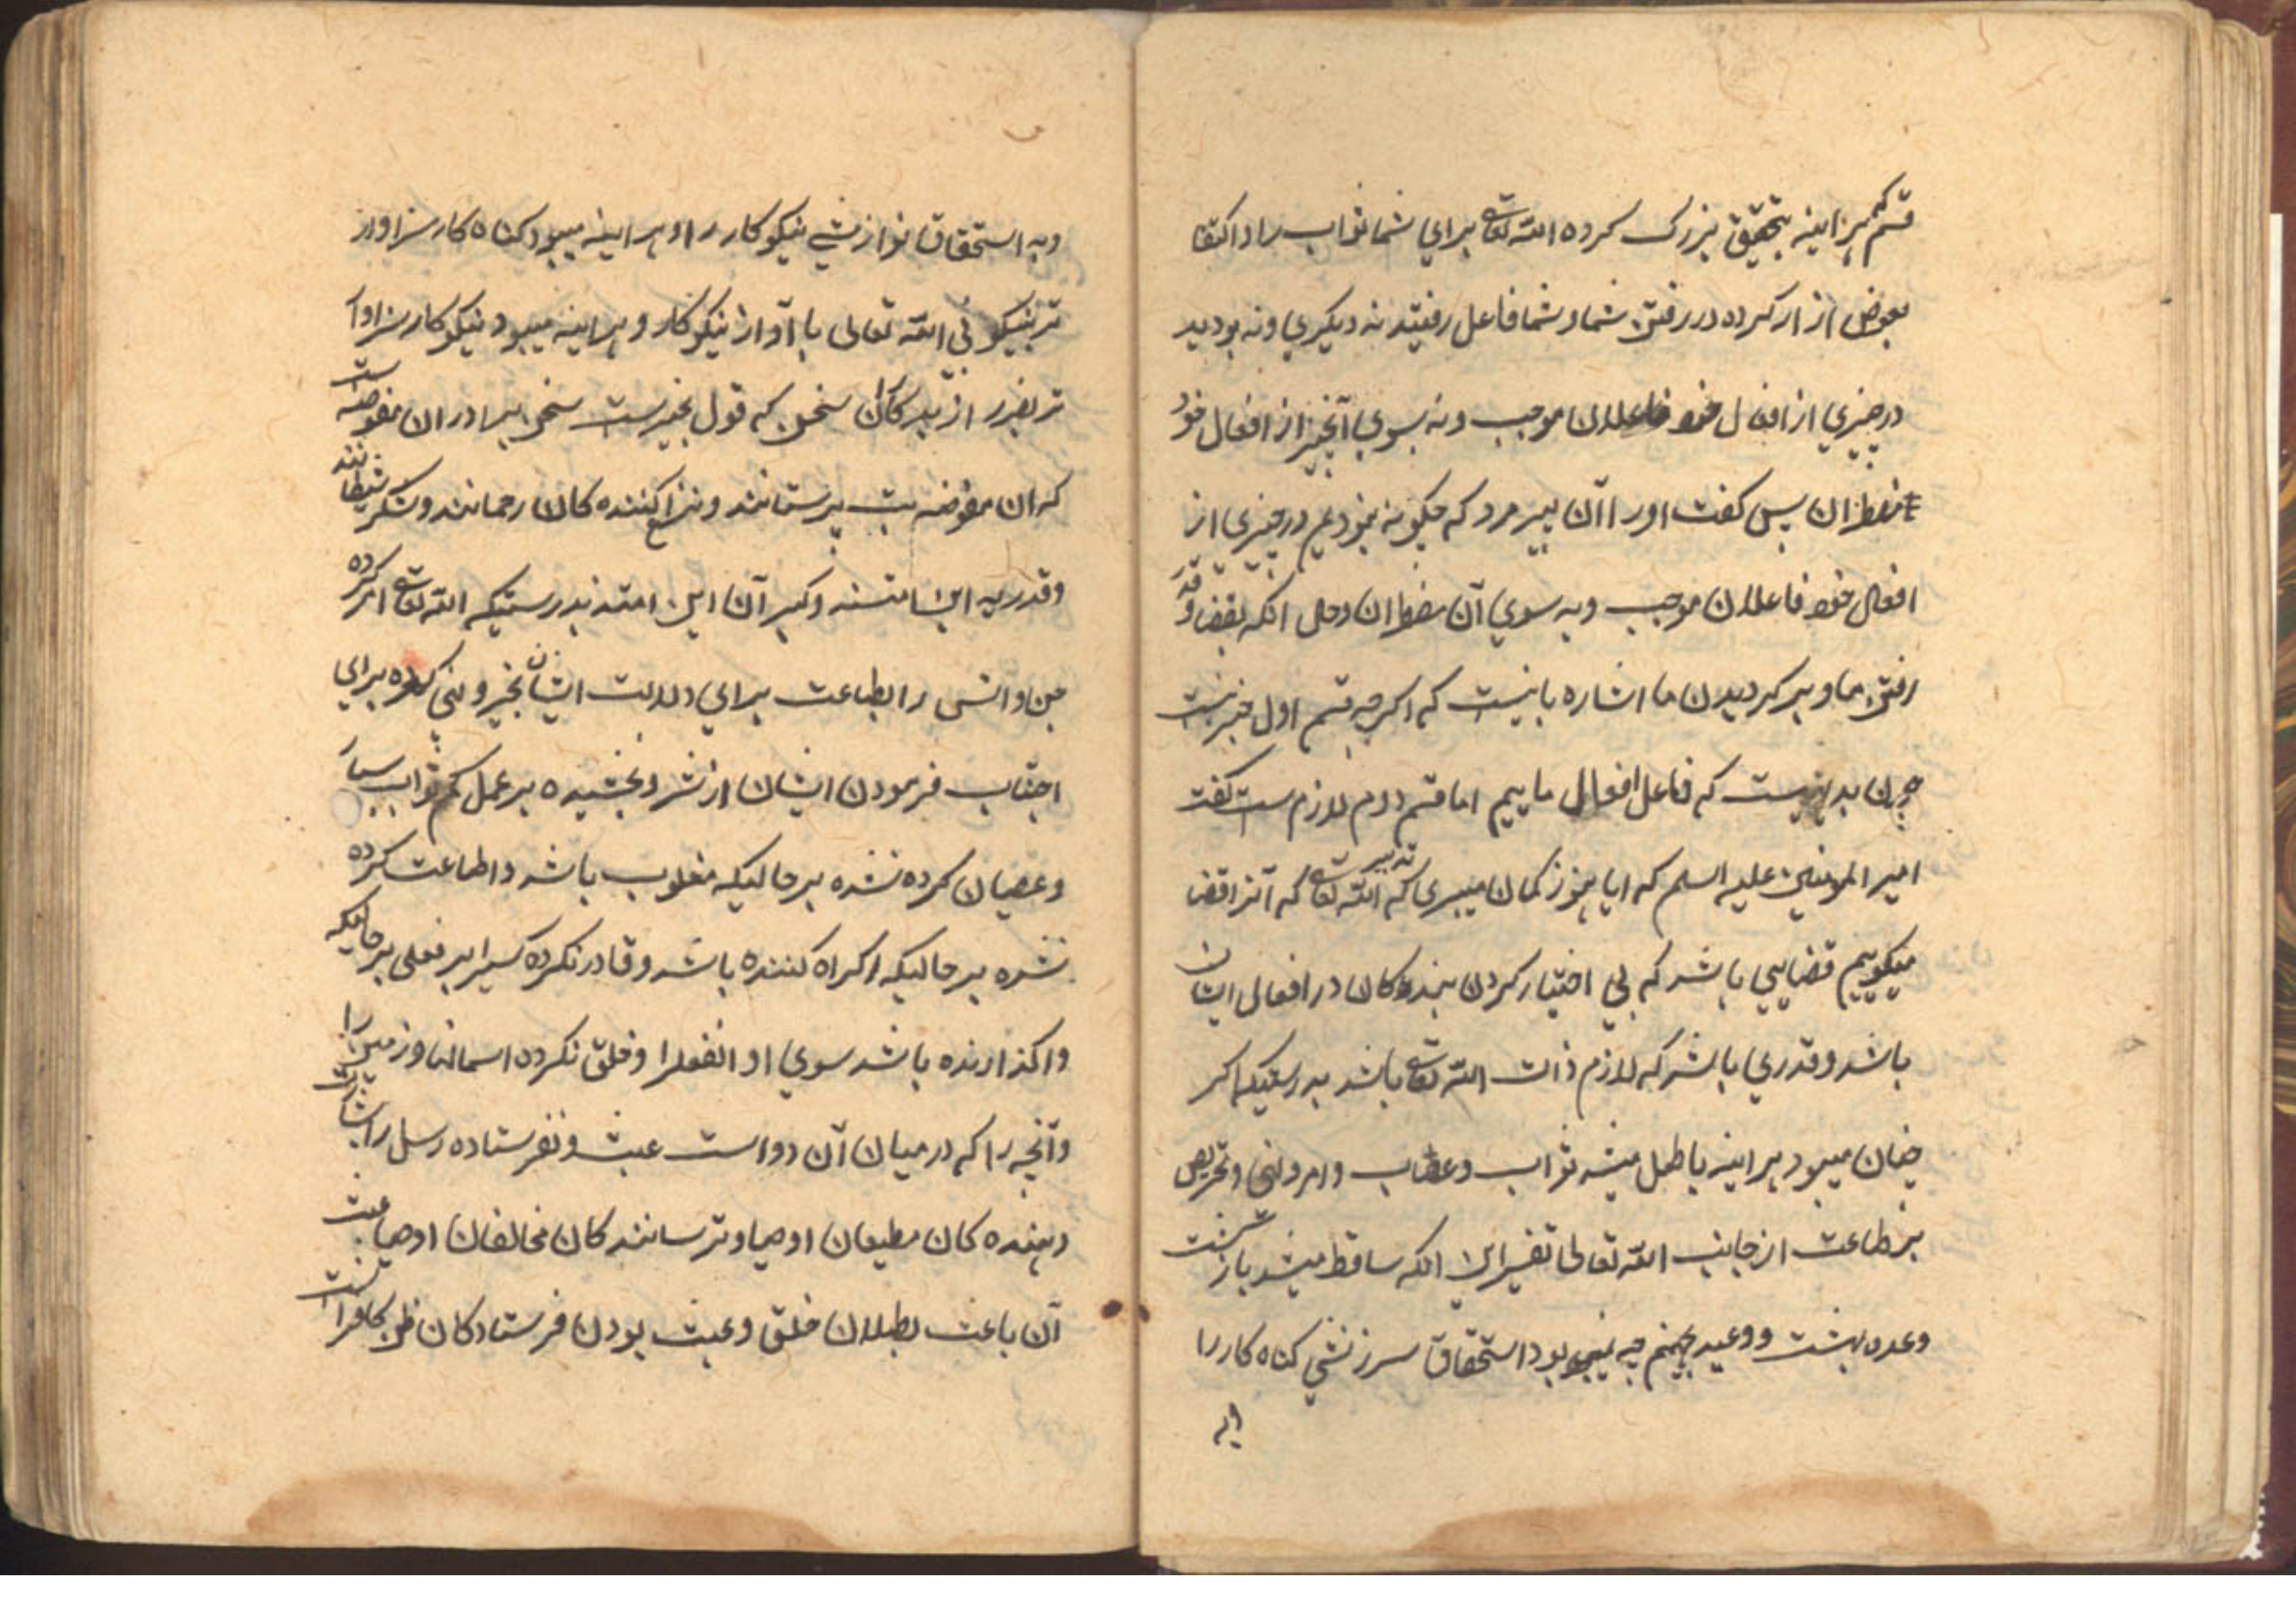 قسم که هر اینه بتحقیق بزرک کرده الله تعا برای شما ثواب را و اکتفا
بعوض ازار کرده در رفتن شما و شما فاعل رفتید نه دیکری و نه بودید
در چیزی از افعال خود فاعلان موجب و نه بسوی آنچیز از افعال خود
مضطران پس کفت اورا آن پیر مرد که چکونه نبودیم در چیزی از
افعال خود فاعلان موجب و به سوی آن مضطران و حال انکه بقضا و قدر
رفتن ما و بر کردیدن ما اشاره باینست که اکر چه قسم اول خبر نیست
چون بدیهیست که فاعل افعال ماییم اما قسم دوم لازم ست کفت
امیر المومنین علیه السلم که ایا هنوز کمان میبری که تدبیر الله تعا که آنرا قضا
میکوییم قضایی باشد که بی اختیار کردن بندکان در افعال ایشان
باشد و قدری باشد که لازم ذات الله تعا باشد بدرستیکه اکر
چنان میبود هر اینه باطل میشد ثواب و عقاب و امر و نهی و تحریص
بر طاعت از جانب الله تعالی تفسیر این انکه ساقط میشد بازکشت
وعده بهشت و وعید جهنم چه نمیبود استحقاق سرزنشی کناه کار را
وبه
و به استحقاق نوازشی نیکو کار را و هر اینه میبود کناه کار سزاوار
تر بنیکویی الله تعالی با او از نیکو کار و هر اینه میبود نیکو کار سزاوا
تر بضرر از بدکار ان سخن که قول بجبرست سخن برادران مفوضه است
که ان مفوضه بت پرستانند و نزاع کننده کان رحمانند و لشکر شیطانند
و قدریه این امتند و کبر آن این امتند بدرستیکه الله تعا امر کرده
جن و انس را بطاعت برای دلالت ایشان بخیر و نهی کرده برای
اجتناب فرمودن ایشان از شر و بخشیده بر عمل کم ثواب بسیار
و عصیان کرده نشده بر حالیکه مغلوب باشد و اطاعت کرده
نشده بر حالیکه اکراه کننده باشد و قادر نکرده کسیرا بر فعلی بر حالیکه
واکذارنده باشد سوی او انفعلرا و خلق نکرده اسمانها و زمین را
و آنچه را که در میان آن دو است عبث و نفرستاده رسل را بشارت
دهنده کان مطیعان اوصیا و ترسانندکان مخالفان اوصیا عبث
آن باعث بطلان خلق و عبث بودن فرستادکان ظن کافرانست